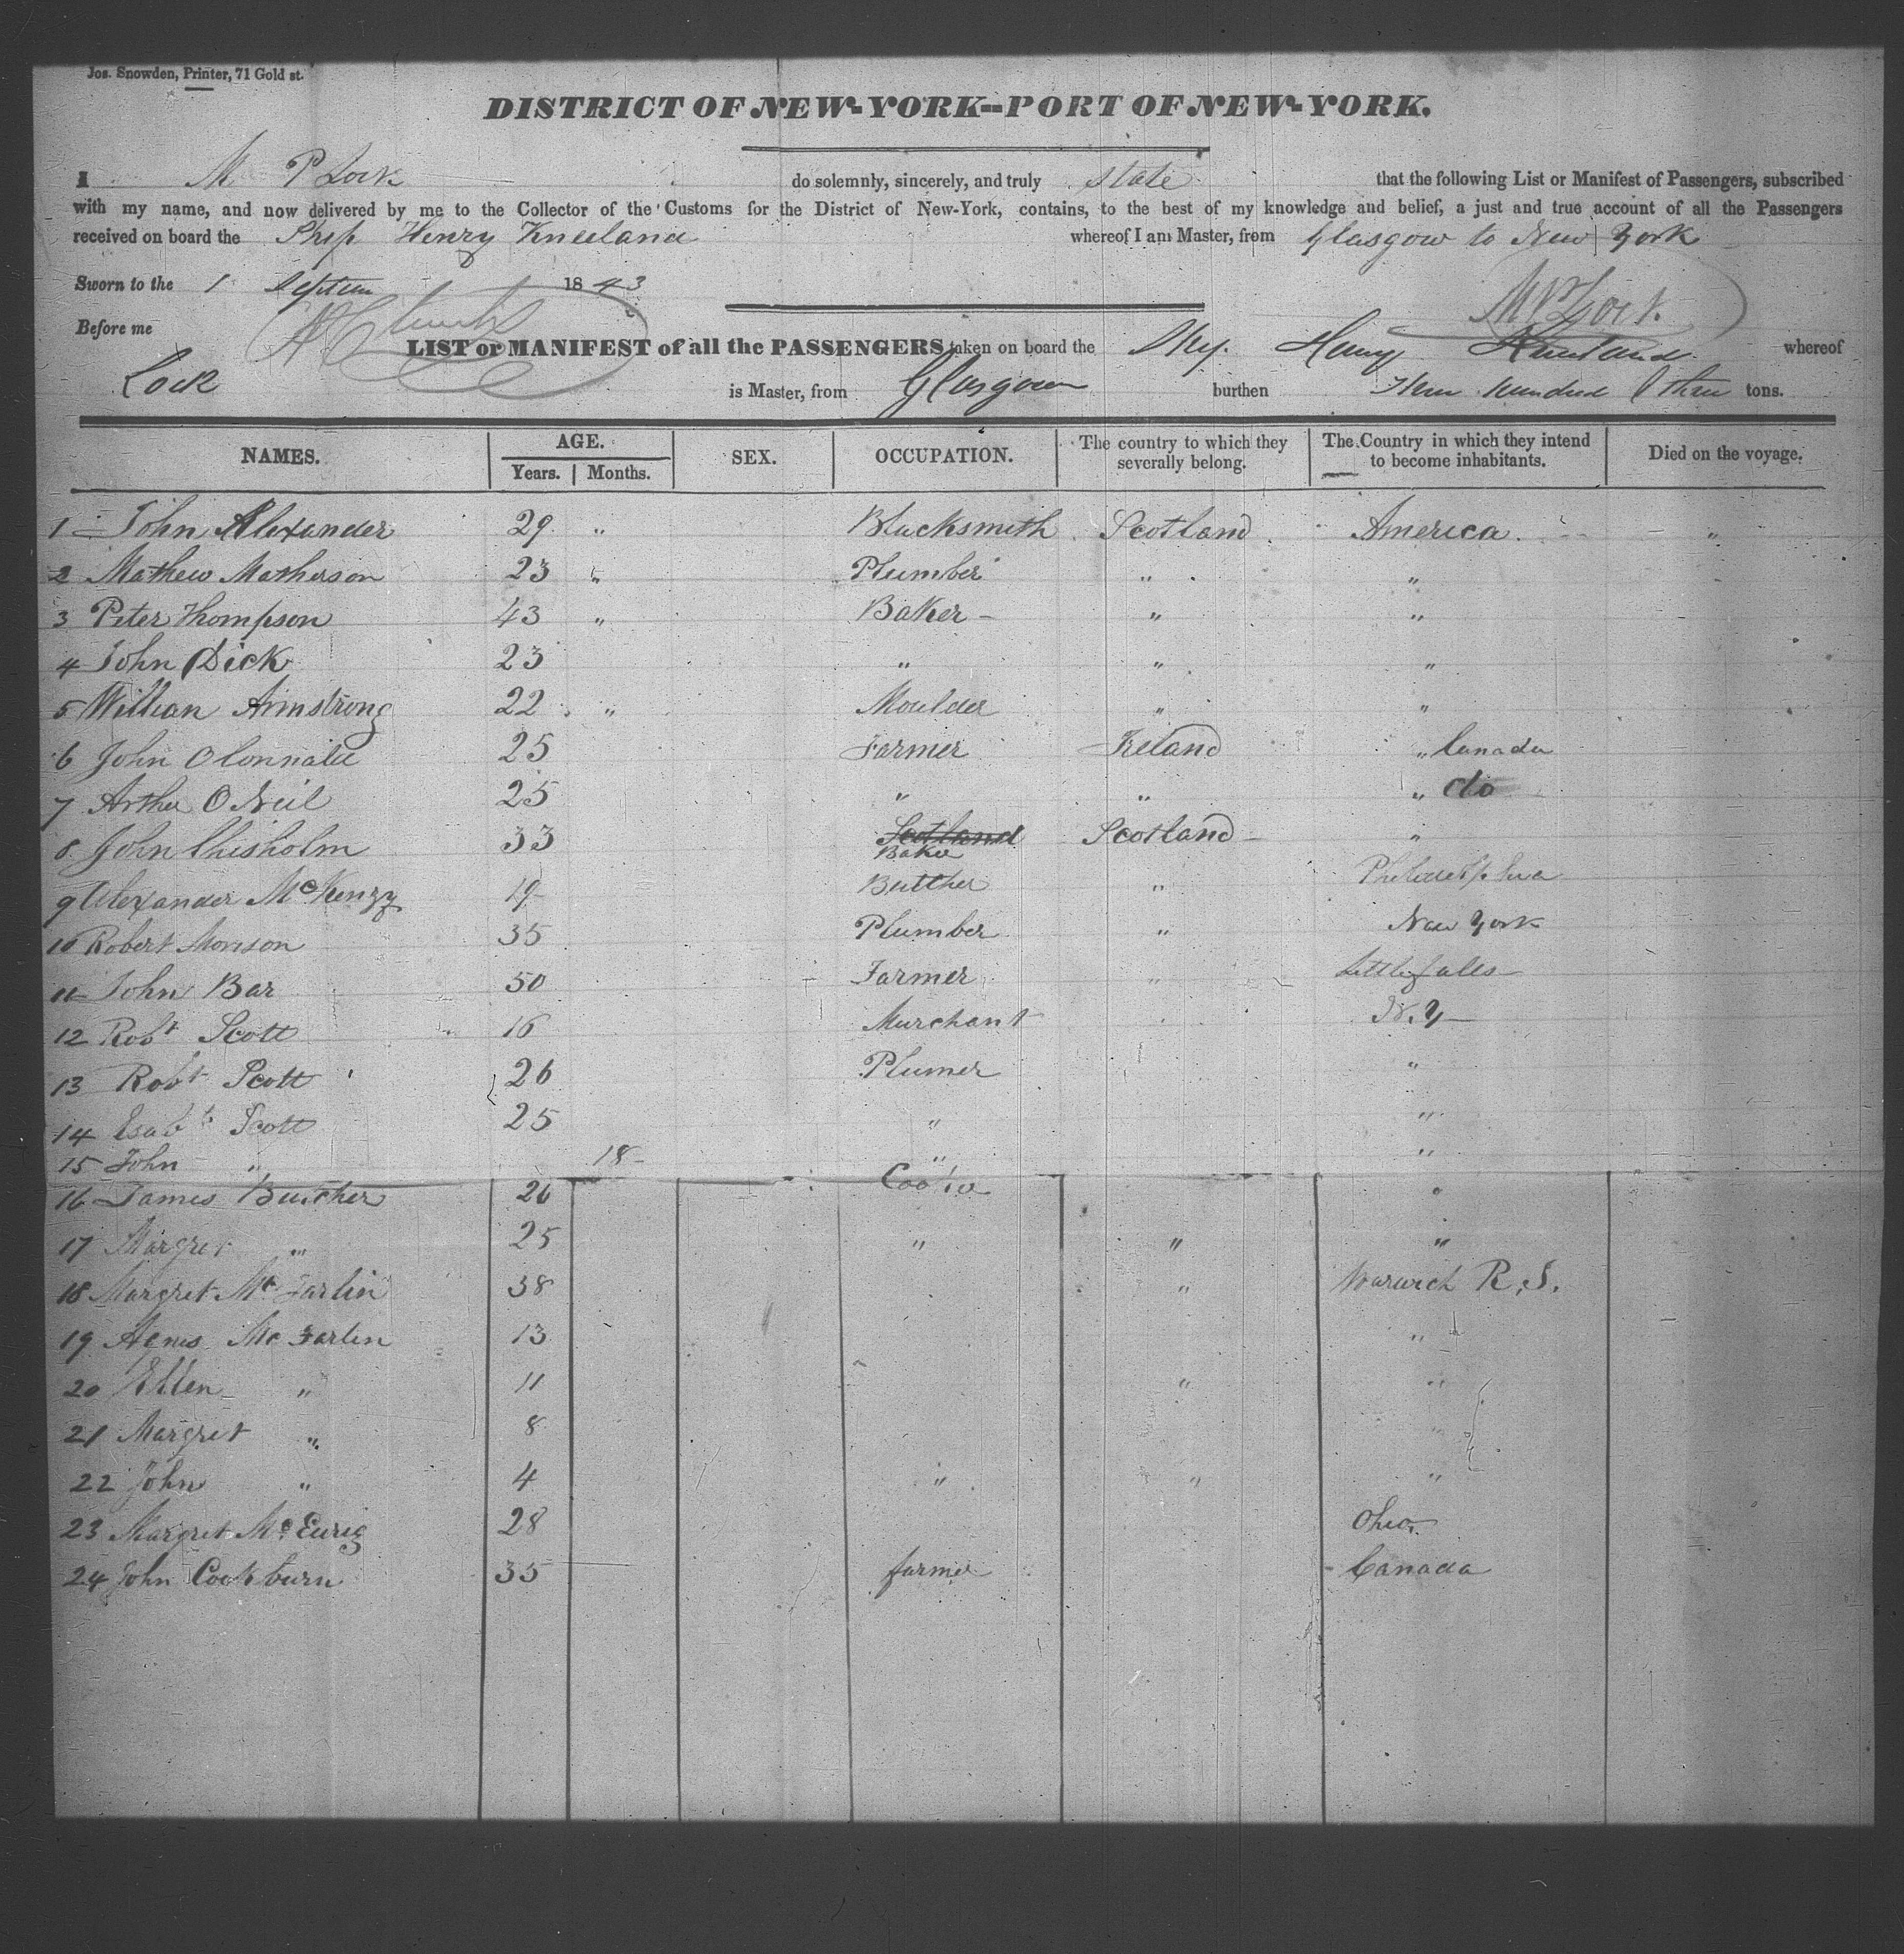 Jos. Snowden, Printer, 71 Gold st.
DISTRICT OF NEW-YORK--PORT OF NEW-YORK.
I M P Lock do solemnly, sincerely, and truly state that the following List or Manifest of Passengers, subscribed
with my name, and now delivered by me to the Collector of the Customs for the District of New-York, contains, to the best of my knowledge and belief, a just and true account of all the Passengers
received on board the Ship Henry Kneeland whereof I am Master, from Glasgow to New York
Sworn to the 1 Septem 1843
M P Lock
Before me
LIST or MANIFEST of all the PASSENGERS taken on board the Ship Henry Kneeland whereof
Lock is Master, from Glasgow burthen hundred three tons.
NAMES. AGE. Years. Months. SEX. OCCUPATION. The country to which they severally belong. The Country in which they intend to become inhabitants. Died on the voyage.
1 John Alexander 29 " Blacksmith Scotland America "
2 Mathew Matherson 23 " Plumber " "
3 Peter Thompson 43 " Baker " "
4 John Dick 23 " " "
5 William Armstrong 22 " Moulder " "
6 John 25 Farmer Ireland " Canada
7 Arthu O Neil 25 " " " do
8 John Chisholm 33 Scotland Baker Scotland "
9 Alexander McKenzy 19 Butcher " Philadelphia
10 Robert Morison 35 Plumber " New York
11 John Bar 50 Farmer " Little falls
12 Robt Scott 16 Murchant N.Y
13 Robt Scott 26 Plumer "
14 Scott 25 " "
15 John " 18 " "
16 James Butcher 26 "
17 Margret " 25 " " "
18 Margret Mc Farlin 38 " Warwick R.I.
19 Agnes Mc Farlin 13 "
20 Ellen " 11 " "
21 Margret " 8 "
22 John " 4 " " "
23 Margret 28 Ohio
24 John Cockburn 35 farmer Canada